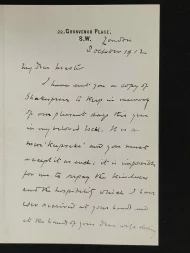 22, GROSVENOR PLACE,
S.W.
London
October 1912
My Dear Master
I have sent you a copy of
Shakespeare to keep in memory
of our pleasant days this year
in my beloved It is a
mere and you must
accept it as such; it is impossible
for me to repay the kindness
and the hospitality which I have
ever received at your hand and
at the hand of your Dear wife during